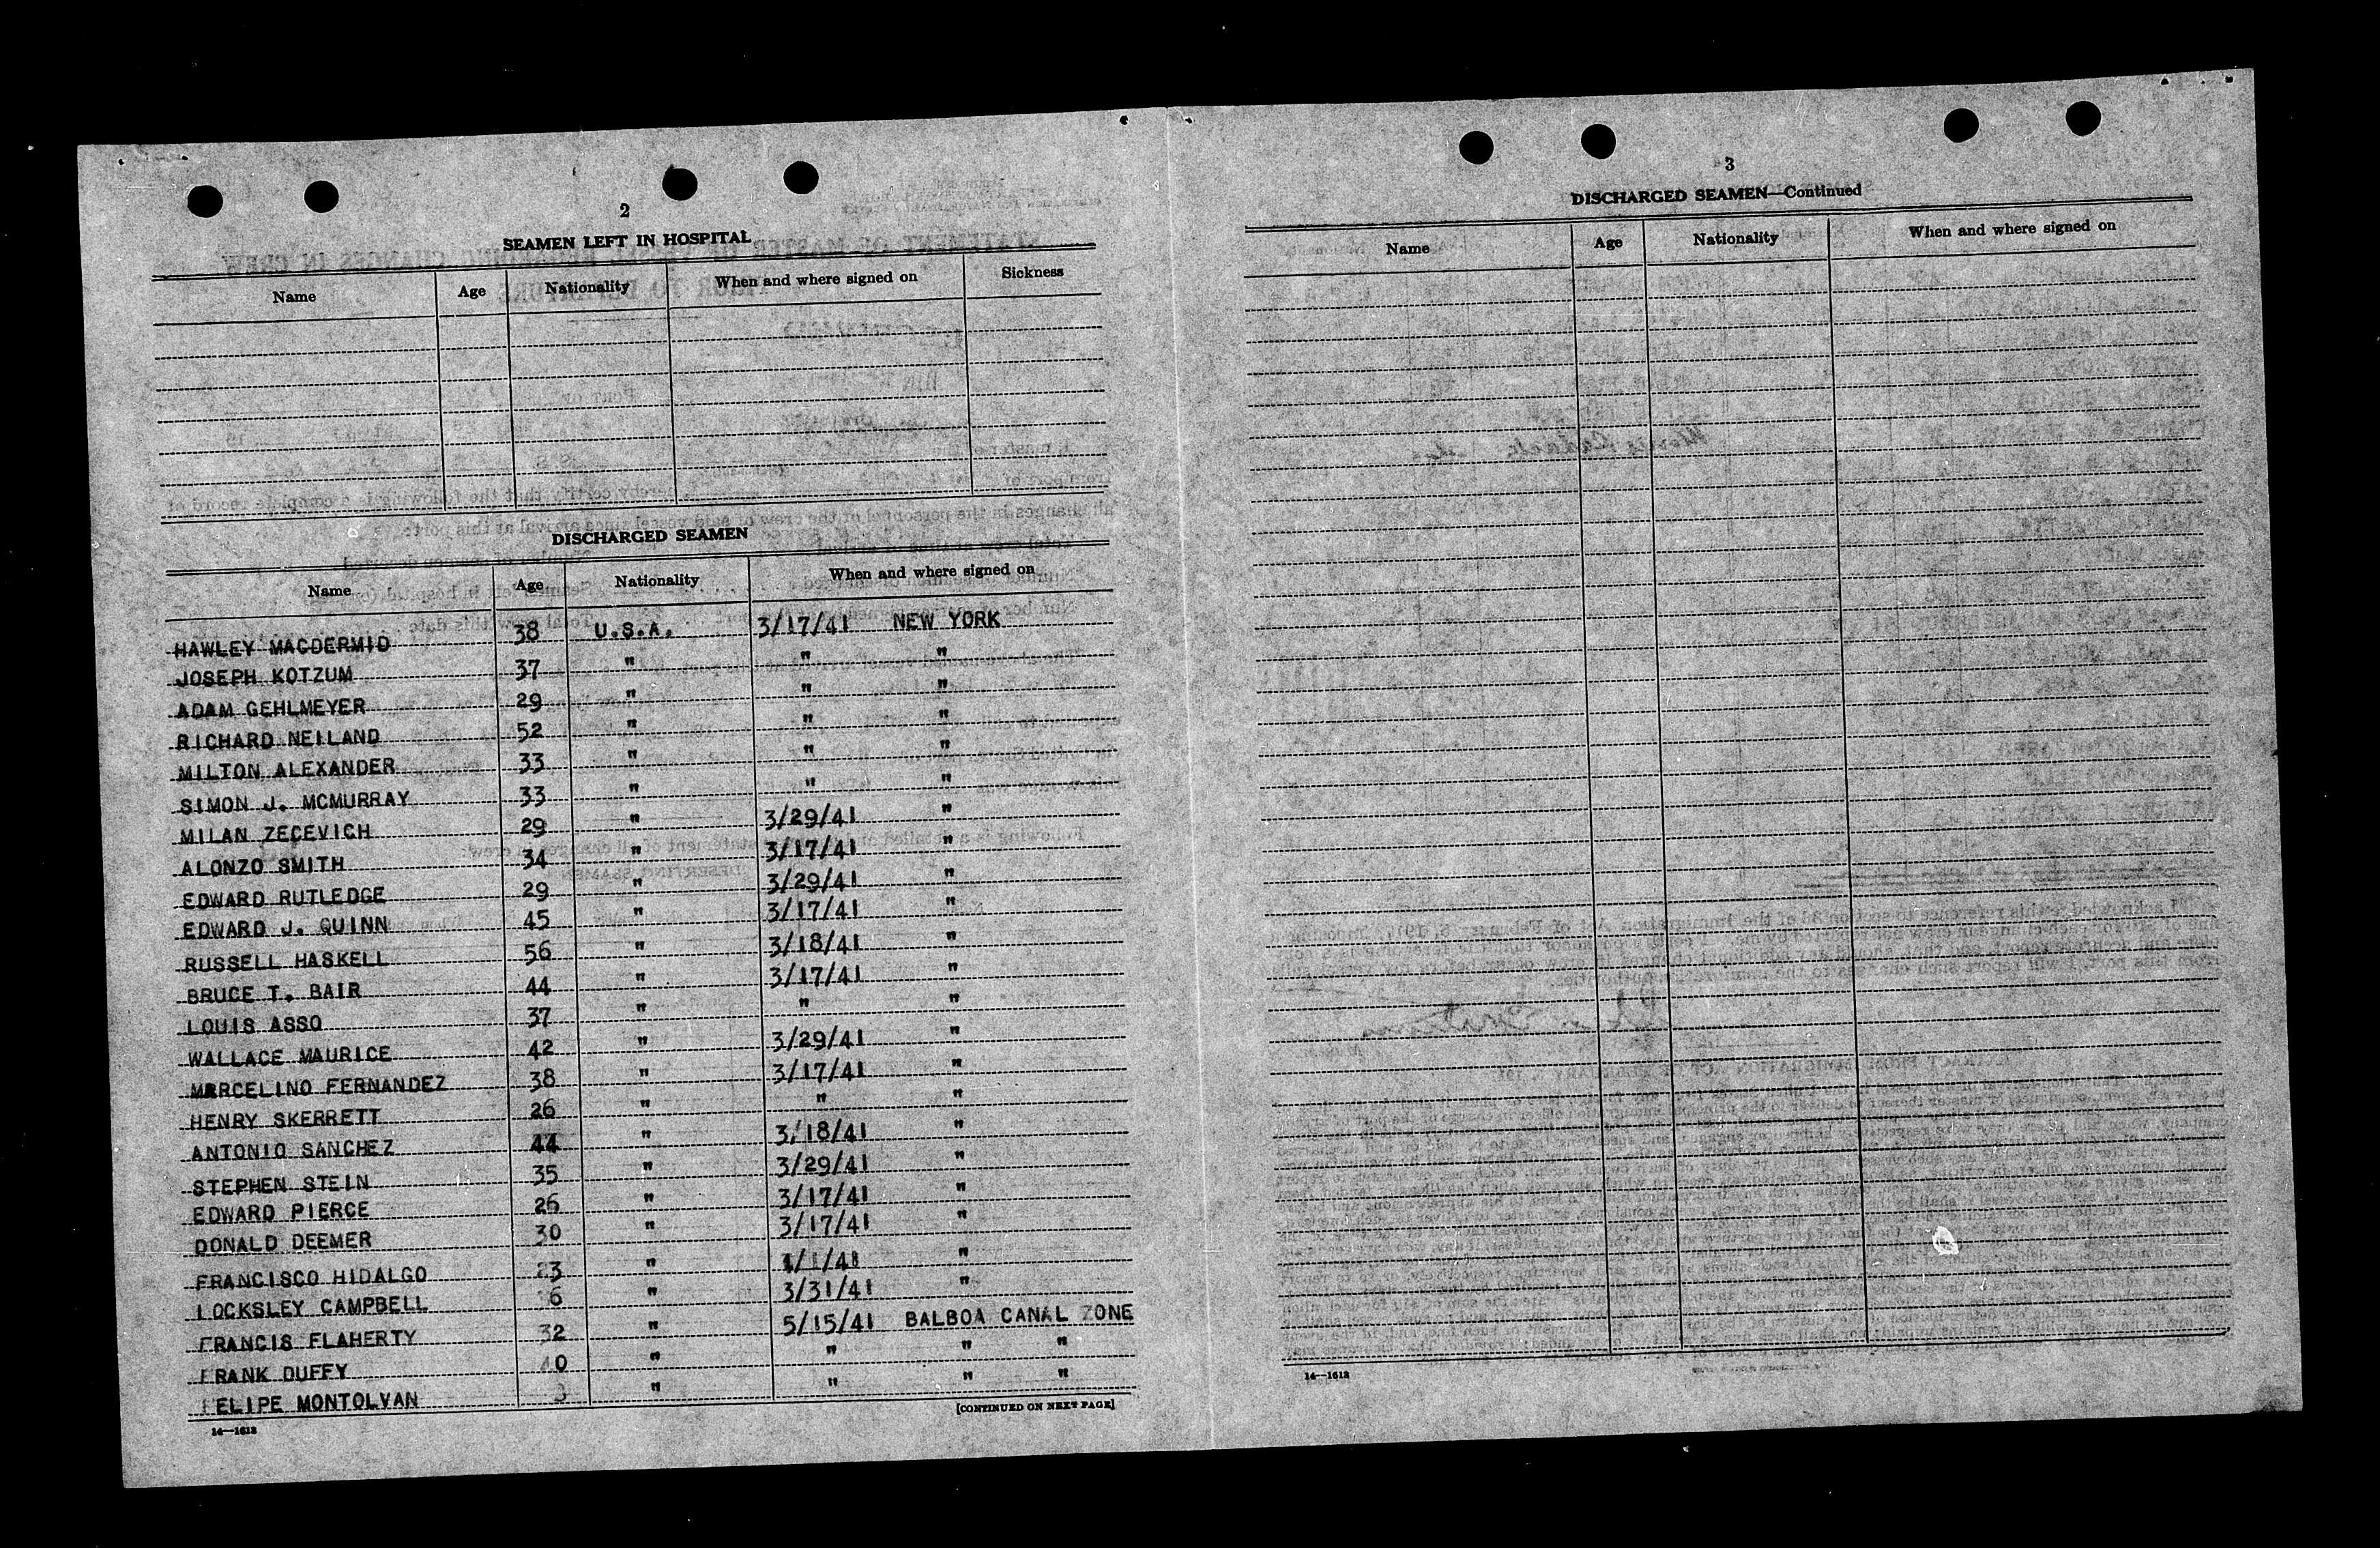 2
SEAMEN LEFT IN HOSPITAL
Name Age Nationality When and where signed on Sickness
DISCHARGED SEAMEN
Name Age Nationality When and where signed on
HAWLEY MACDERMID 38 U.S.A. 3/17/41 NEW YORK
JOSEPH KOTZUM 37 " " "
ADAM GEHLMEYER 29 " " "
RICHARD NEILAND 52 " " "
MILTON ALEXANDER 33 " " "
SIMON J. MCMURRAY 33 " " "
MILAN ZECEVICH 29 " 3/29/41 "
ALONZO SMITH 34 " 3/17/41 "
EDWARD RUTLEDGE 29 " 3/29/41 "
EDWARD J. QUINN 45 " 3/17/41 "
RUSSELL HASKELL 56 " 3/18/41 "
BRUCE T. BAIR 44 " 3/17/41 "
LOUIS ASSO 37 " " "
WALLACE MAURICE 42 " 3/29/41 "
MARCELINO FERNANDEZ 38 " 3/17/41 "
HENRY SKERRETT 26 " " "
ANTONIO SANCHEZ 44 " 3/18/41 "
STEPHEN STEIN 35 " 3/29/41 "
EDWARD PIERCE 26 " 3/17/41 "
DONALD DEEMER 30 " 3/17/41 "
FRANCISCO HIDALGO 23 " "
LOCKSLEY CAMPBELL " 3/31/41 "
FRANCIS FLAHERTY 32 " 5/15/41 BALBOA CANAL ZONE
FRANK DUFFY 40 " " " "
FELIPE MONTOLVAN " " " "
14—1613
[CONTINUED ON NEXT PAGE]
3
DISCHARGED SEAMEN—Continued
Name Age Nationality When and where signed on
14—1613